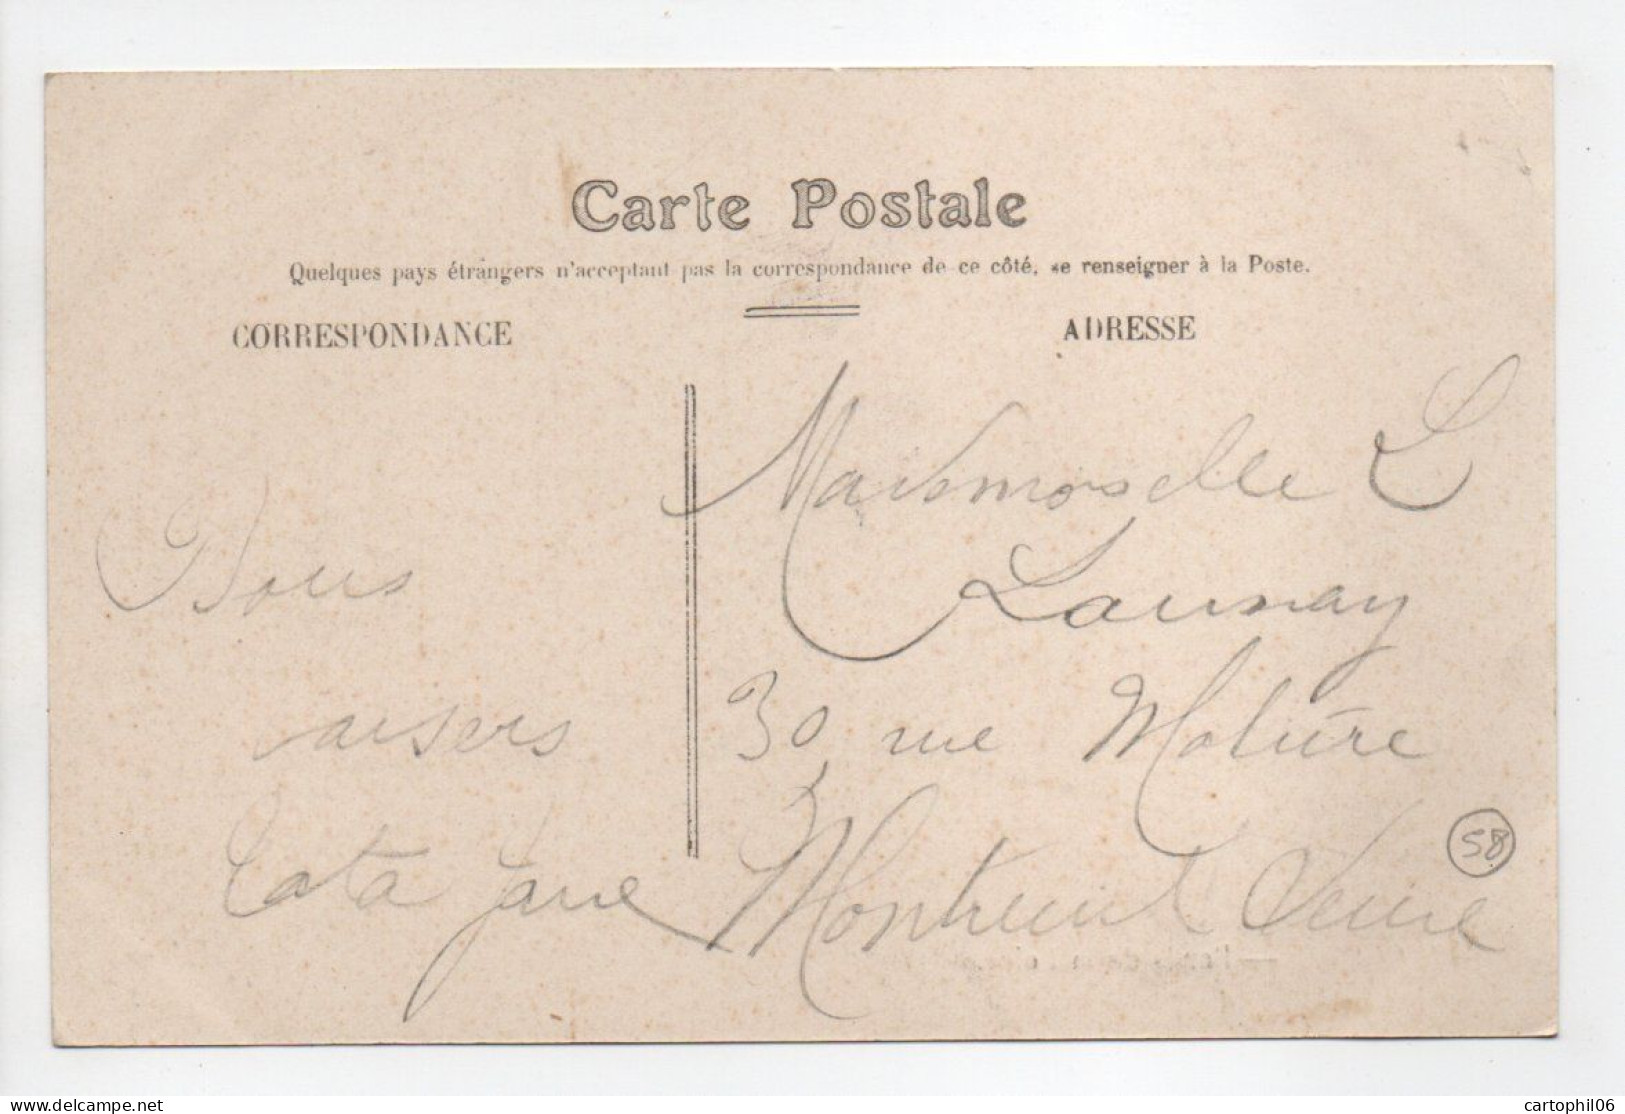 Carte Postale
Quelques pays étrangers n'acceptant pas la correspondance de ce côté, se renseigner à la Poste.
CORRESPONDANCE
ADRESSE
Bons
aisers
Tata Jane
Mademoiselle L
Launay
30 rue Molière
Montreuil Seine
58
cartophil06